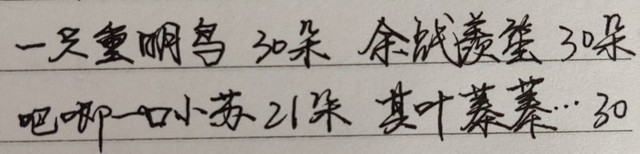 一只重明鸟 30朵 余战羡莹 30朵
吧唧一口小苏 21朵 其叶蓁蓁… 30